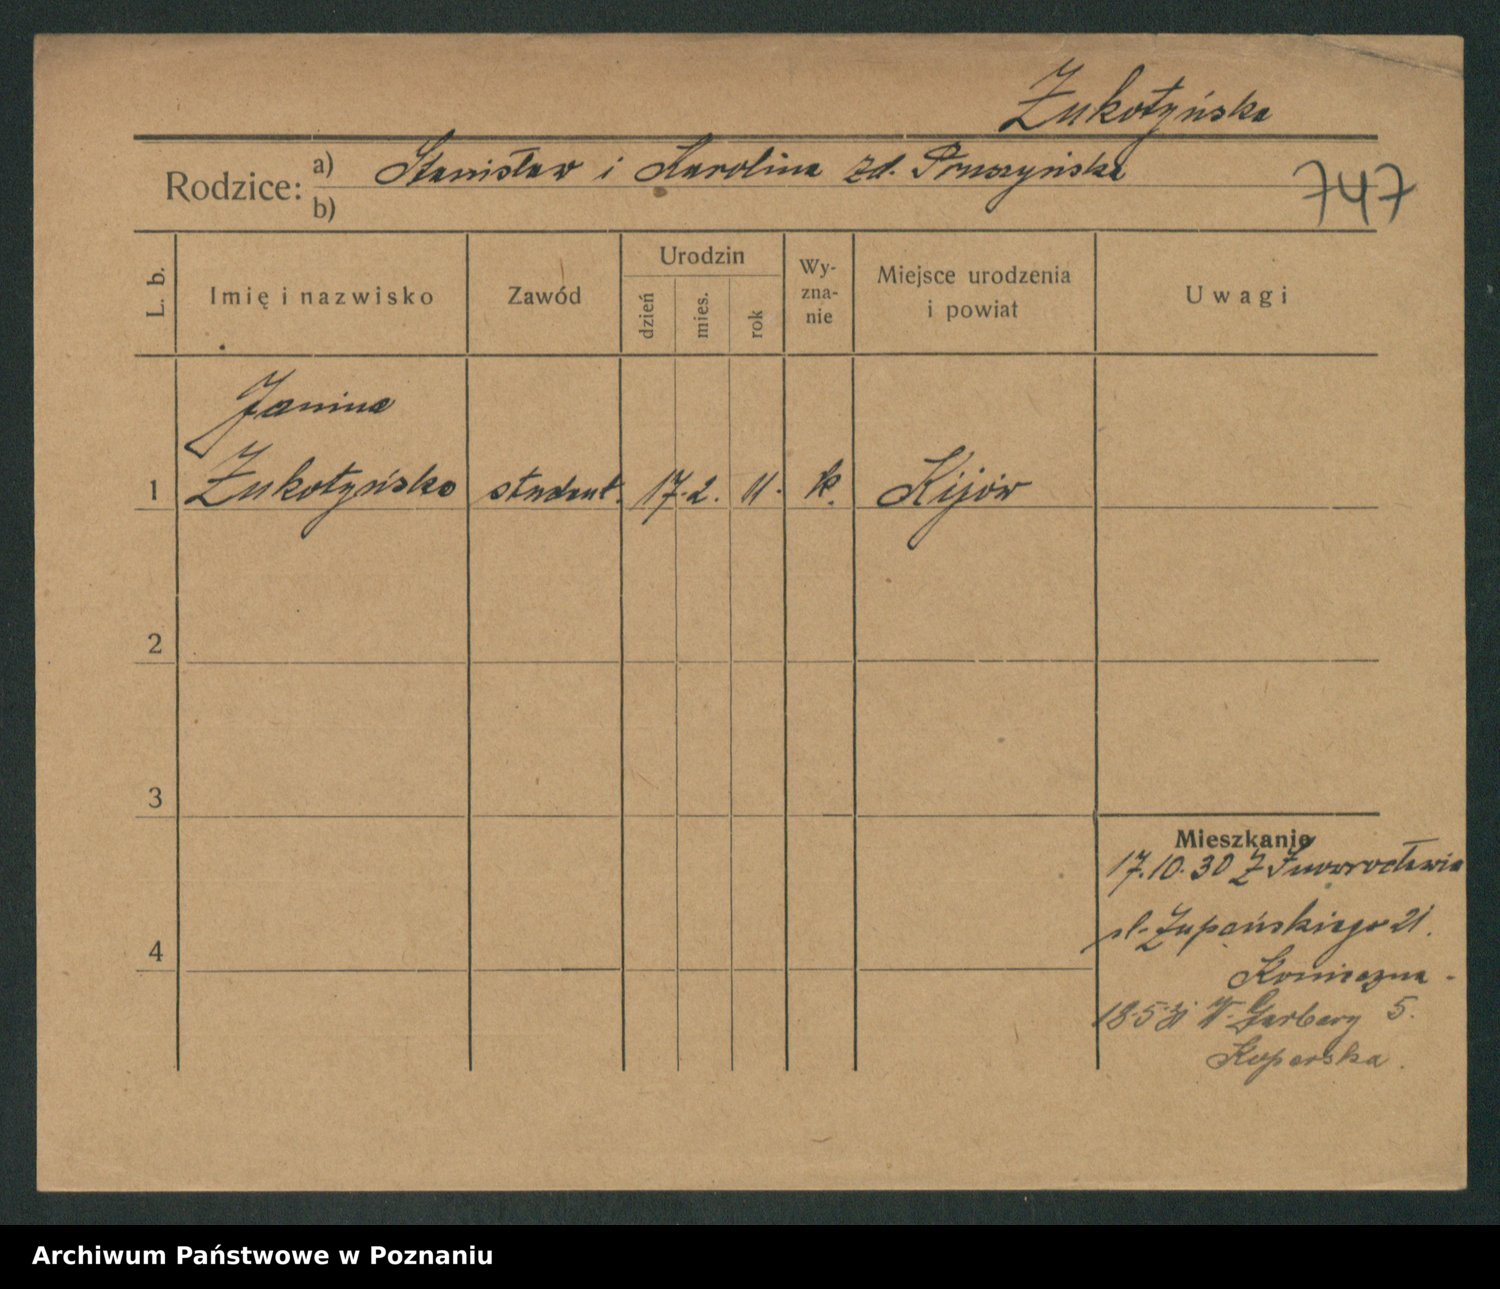 Żukotyńska
Rodzice: a) Stanisław i Karolina zd. Pruszyńska
b)
747
L. b.
Imię i nazwisko
Zawód
Urodzin
dzień
mies.
rok
Wy-
zna-
nie
Miejsce urodzenia
i powiat
Uwagi
Janina
1 Żukotyńska student. 17. 2. 11. k. Kijów
2
3
Mieszkanie
17.10.30 Z Inowrocławia
pl. Żupańskiego 21.
4
Konieczna.
18.5.31 W. Garbary 5.
Koperska.
Archiwum Państwowe w Poznaniu